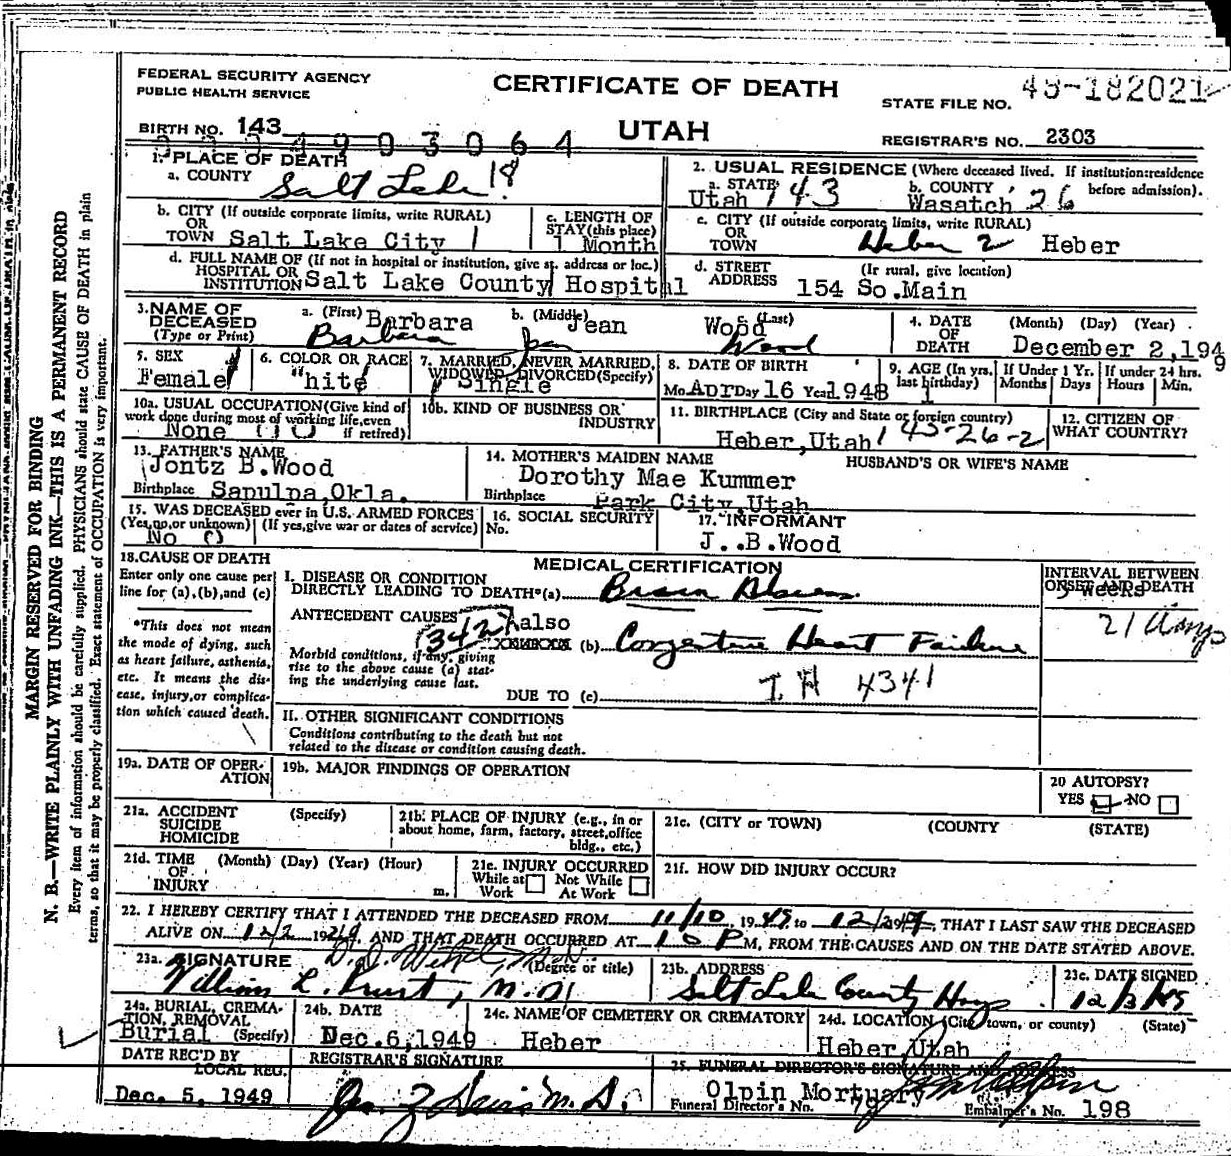 FEDERAL SECURITY AGENCY
PUBLIC HEALTH SERVICE
CERTIFICATE OF DEATH
STATE FILE NO. 49-182021
BIRTH NO. 143
4903064
UTAH
REGISTRAR'S NO. 2303
1. PLACE OF DEATH
a. COUNTY Salt Lake 18
2. USUAL RESIDENCE (Where deceased lived. If institution:residence before admission).
a. STATE Utah 143 b. COUNTY Wasatch 26
b. CITY (If outside corporate limits, write RURAL) OR TOWN Salt Lake City 1
c. LENGTH OF STAY(this place) 1 Month
c. CITY (If outside corporate limits, write RURAL) OR TOWN Heber 2 Heber
d. FULL NAME OF (If not in hospital or institution, give st. address or loc.) HOSPITAL OR INSTITUTION Salt Lake County Hospital
d. STREET ADDRESS (Ir rural, give location) 154 So.Main
3. NAME OF DECEASED (Type or Print)
a. (First) Barbara b. (Middle) Jean c. (Last) Wood
Barbara Jean Wood
4. DATE OF DEATH (Month) (Day) (Year) December 2,1949
5. SEX Female
6. COLOR OR RACE "hite
7. MARRIED, NEVER MARRIED, WIDOWED, DIVORCED(Specify) Single
8. DATE OF BIRTH Mo. Apr Day 16 Year 1948
9. AGE (In yrs. last birthday) 1
If Under 1 Yr. Months Days
If under 24 hrs. Hours Min.
10a. USUAL OCCUPATION(Give kind of work done during most of working life,even if retired) None
10b. KIND OF BUSINESS OR INDUSTRY
11. BIRTHPLACE (City and State or foreign country) Heber,Utah 143-26-2
12. CITIZEN OF WHAT COUNTRY?
13. FATHER'S NAME Jontz B.Wood
Birthplace Sapulpa,Okla.
14. MOTHER'S MAIDEN NAME Dorothy Mae Kummer
Birthplace Park City,Utah
HUSBAND'S OR WIFE'S NAME
15. WAS DECEASED ever in U.S. ARMED FORCES (Yes,no,or unknown) (If yes,give war or dates of service) No 0
16. SOCIAL SECURITY No.
17. INFORMANT J..B.Wood
18.CAUSE OF DEATH
Enter only one cause per line for (a),(b),and (c)
*This does not mean the mode of dying, such as heart failure, asthenia, etc. It means the disease, injury,or complication which caused death.
MEDICAL CERTIFICATION
I. DISEASE OR CONDITION DIRECTLY LEADING TO DEATH*(a) Brain Abscess
INTERVAL BETWEEN ONSET AND DEATH
3 weeks
21 days
ANTECEDENT CAUSES
342 also
(b) Congestive Heart Failure
Morbid conditions, if any, giving rise to the above cause (a) stating the underlying cause last.
4341
DUE TO (c)
II. OTHER SIGNIFICANT CONDITIONS
Conditions contributing to the death but not related to the disease or condition causing death.
19a. DATE OF OPERATION
19b. MAJOR FINDINGS OF OPERATION
20 AUTOPSY?
YES NO
21a. ACCIDENT SUICIDE HOMICIDE (Specify)
21b. PLACE OF INJURY (e.g., in or about home, farm, factory, street,office bldg., etc.)
21c. (CITY or TOWN) (COUNTY (STATE)
21d. TIME OF INJURY (Month) (Day) (Year) (Hour) m.
21e. INJURY OCCURRED While at Work Not While At Work
21f. HOW DID INJURY OCCUR?
22. I HEREBY CERTIFY THAT I ATTENDED THE DECEASED FROM 11/10, 1949 to 12/2 49, THAT I LAST SAW THE DECEASED
ALIVE ON 12/2 1949, AND THAT DEATH OCCURRED AT 10 P M, FROM THE CAUSES AND ON THE DATE STATED ABOVE.
23a. SIGNATURE (Degree or title)
William L. M.D.
23b. ADDRESS Salt Lake County Hosp
23c. DATE SIGNED 12/3/49
24a. BURIAL, CREMATION, REMOVAL (Specify) Burial
24b. DATE Dec.6,1949
24c. NAME OF CEMETERY OR CREMATORY Heber
24d. LOCATION (City, town, or county) (State) Heber,Utah
DATE REC'D BY LOCAL REG. Dec. 5, 1949
REGISTRAR'S SIGNATURE M.D.
25. FUNERAL DIRECTOR'S SIGNATURE AND ADDRESS
Olpin Mortuary
Funeral Director's No. 79 Embalmer's No. 198
MARGIN RESERVED FOR BINDING
N. B.—WRITE PLAINLY WITH UNFADING INK—THIS IS A PERMANENT RECORD
Every item of information should be carefully supplied. PHYSICIANS should state CAUSE OF DEATH in plain
terms, so that it may be properly classified. Exact statement of OCCUPATION is very important.